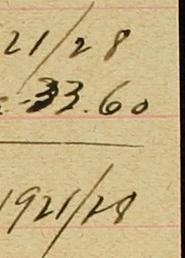 21/28
33.60
1921/28